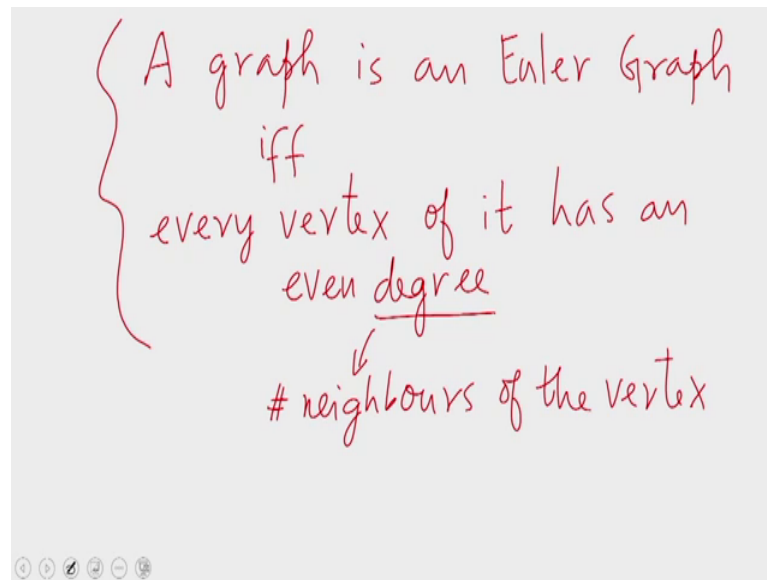 A graph is an Euler Graph
iff
every vertex of it has an
even degree
# neighbours of the vertex